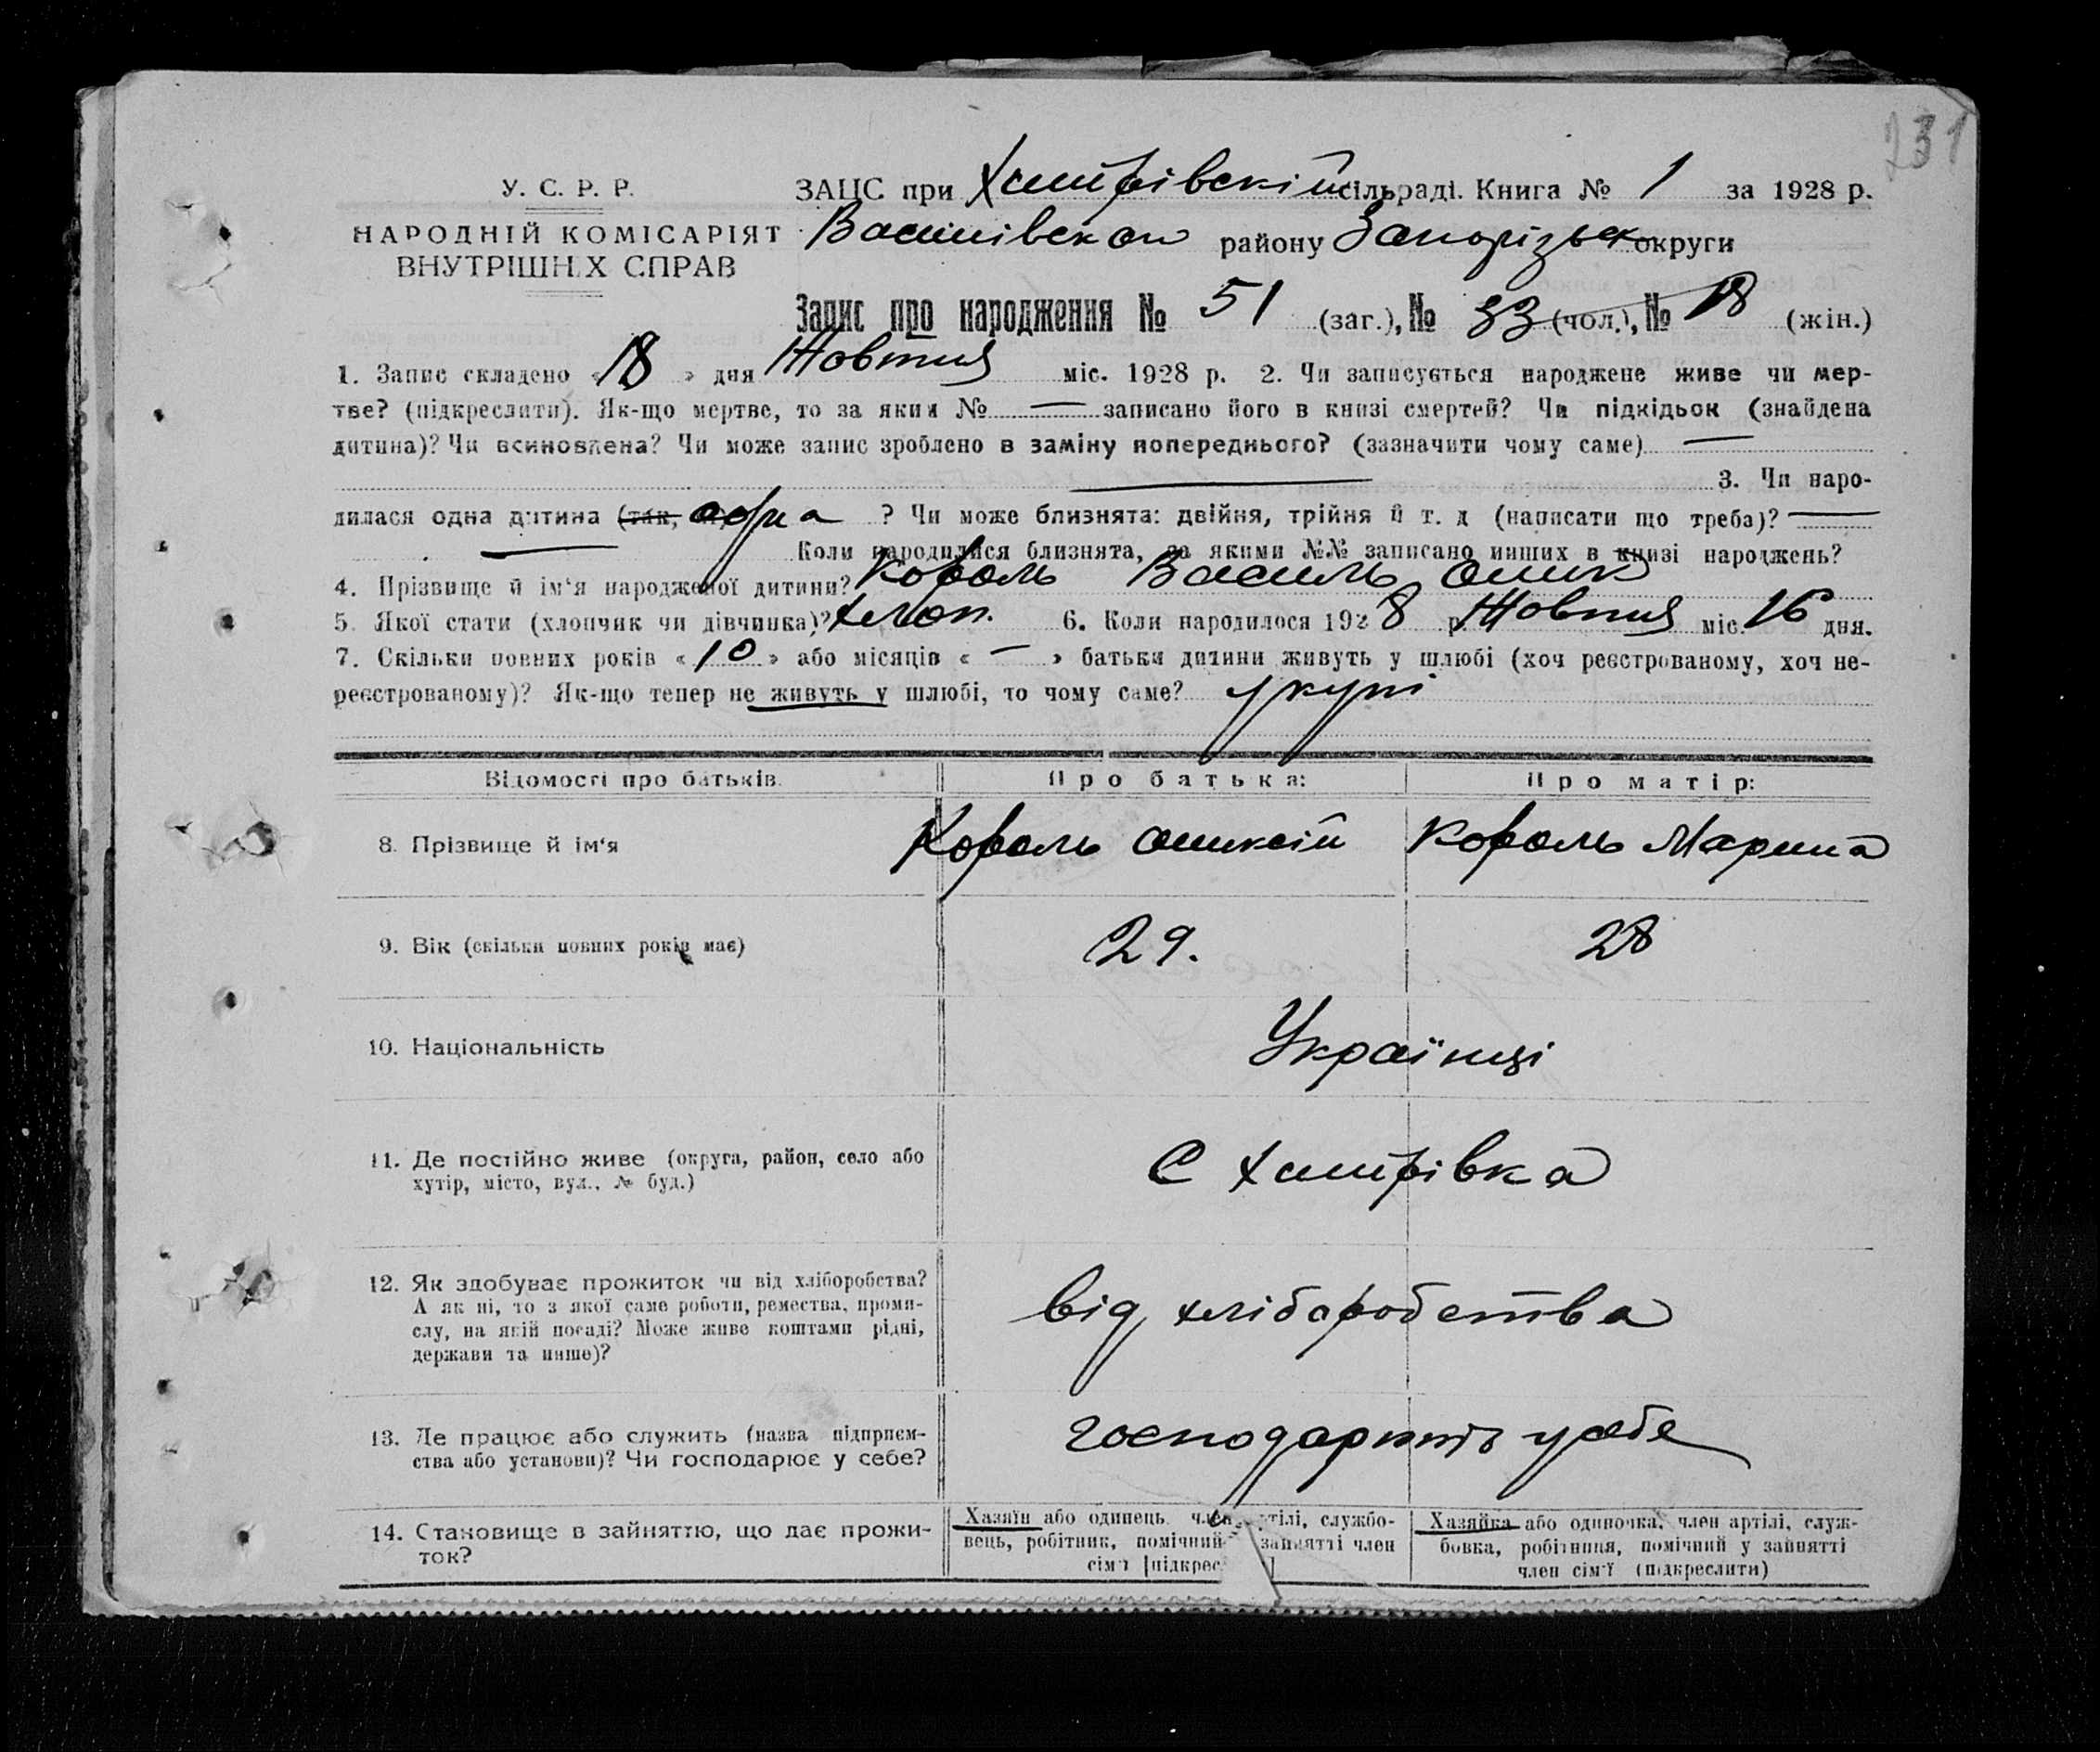 231
У. С. Р. Р.
ЗАЦС при Хитрівській сільраді. Книга № 1 за 1928 р.
НАРОДНІЙ КОМІСАРІЯТ
ВНУТРІШНІХ СПРАВ
району Запорізьк округи
Запис про народження № 51 (заг.), № 33 (чол.), № 18 (жін.)
1. Запис складено «18» дня Жовтня міс. 1928 р. 2. Чи записується народжене живе чи мер-
тве? (підкреслити). Як-що мертве, то за яким № — записано його в книзі смертей? Чи підкідьок (знайдена
дитина)? Чи всиновлена? Чи може запис зроблено в заміну попереднього? (зазначити чому саме) —
— 3. Чи наро-
дилася одна дитина (так, одна ? Чи може близнята: двійня, трійня й т. д (написати що треба)? —
— Коли народилися близнята, за якими №№ записано инших в книзі народжень?
4. Прізвище й ім‘я народженої дитини? Король Василь
5. Якої стати (хлопчик чи дівчинка)? хлоп. 6. Коли народилося 1928 р. Жовтня міс. 16 дня.
7. Скільки повних років «10» або місяців « — » батьки дитини живуть у шлюбі (хоч реєстрованому, хоч не-
реєстрованому)? Як-що тепер не живуть у шлюбі, то чому саме? укупі
Відомості про батьків. Про батька: Про матір:
8. Прізвище й ім‘я Король Оликсій Король Марина
9. Вік (скільки повних років має) 29. 28
10. Національність Українці
11. Де постійно живе (округа, район, село або
хутір, місто, вул., № буд.) С Хитрівка
12. Як здобуває прожиток чи від хліборобства?
А як ні, то з якої саме роботи, ремества, проми-
слу, на якій посаді? Може живе коштами рідні,
держави та инше)?
від хлібаробства
13. Де працює або служить (назва підприєм-
ства або установи)? Чи господарює у себе?
у себе
14. Становище в зайняттю, що дає прожи-
ток?
Хазяїн або одинець член артілі, службо-
вець, робітник, помічний зайнятті член
сім‘ї [підкрес ]
Хазяйка або одиночка, член артілі, служ-
бовка, робітниця, помічний у зайнятті
член сім‘ї (підкреслити)